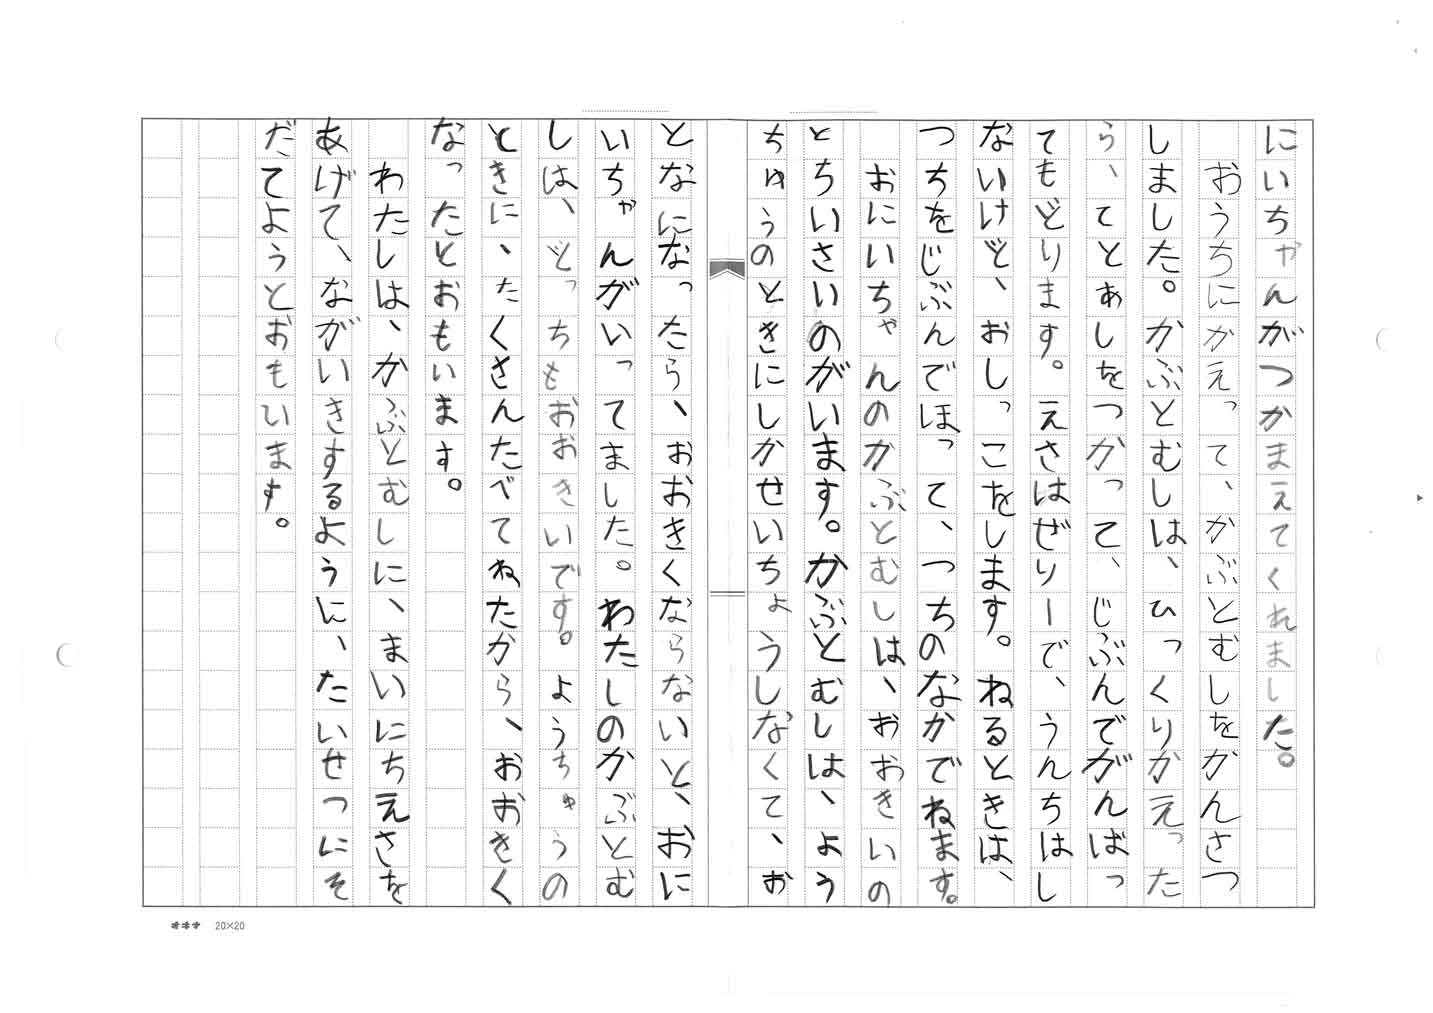 にいちゃんがつかまえてくれました。
おうちにかえって、かぶとむしをかんさつ
しました。かぶとむしは、ひっくりかえった
ら、てとあしをつかって、じぶんでがんばっ
てもどります。えさはぜりーで、うんちはし
ないけど、おしっこをします。ねるときは、
つちをじぶんでほって、つちのなかでねます。
おにいちゃんのかぶとむしは、おおきいの
とちいさいのがいます。かぶとむしは、よう
ちゅうのときにしかせいちょうしなくて、お
となになったら、おおきくならないと、おに
いちゃんがいってました。わたしのかぶとむ
しは、どっちもおおきいです。ようちゅうの
ときに、たくさんたべてねたから、おおきく
なったとおもいます。
わたしは、かぶとむしに、まいにちえさを
あげて、ながいきするように、たいせつにそ
だてようとおもいます。
オキナ 20×20